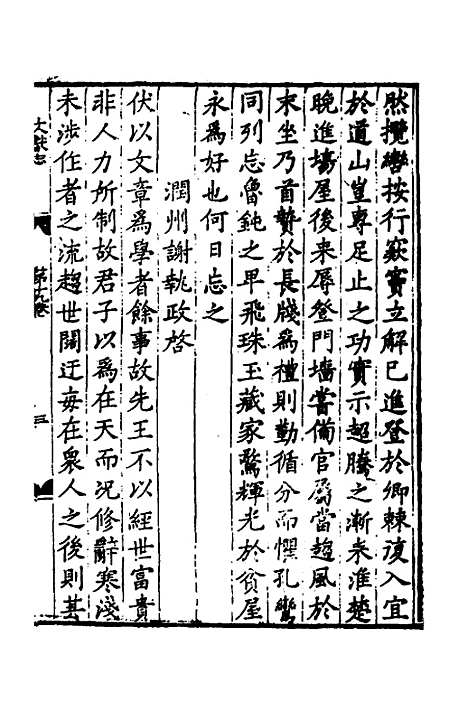 然攬轡按行窾實立解已進登於卿棘復入宜
於道山豈專足止之功實示超騰之漸未淮楚
晚進場屋後来辱登門墻嘗備官屬當趨風於
末坐乃首贄於長牋為禮則勤循分而懼孔鸞
同列忘魯鈍之卑飛珠玉藏家驚輝光於貧屋
永為好也何日忘之
潤州謝執政啓
伏以文章為學者餘事故先王不以經世富貴
非人力所制故君子以為在天而况修辭寒淺
未涉作者之流趨世闊迂每在衆人之後則甚
文獻志
第十九卷
三